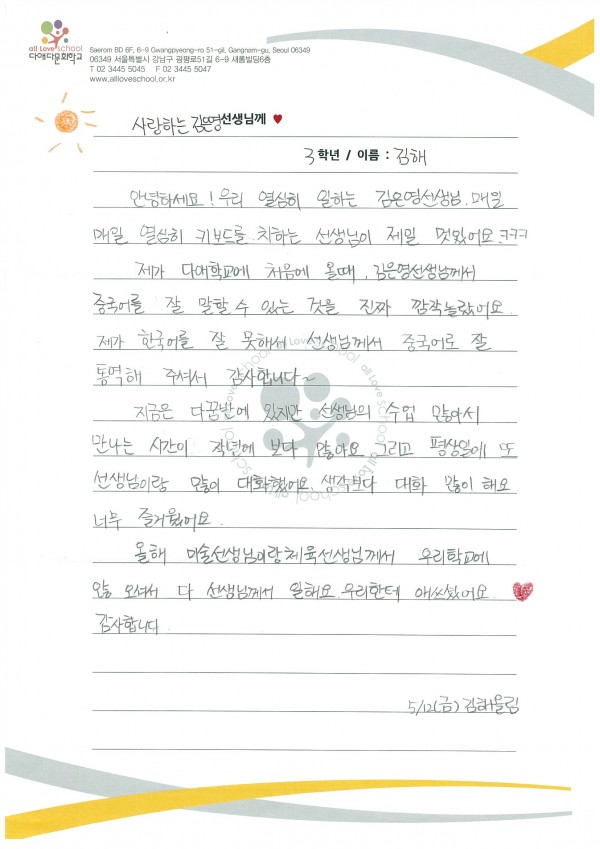 all Love school
다애다문화학교
Saerom BD 6F, 6-9 Gwangpyeong-ro 51-gil, Gangnam-gu, Seoul 06349
06349 서울특별시 강남구 광평로51길 6-9 새롬빌딩6층
T 02 3445 5045 F 02 3445 5047
www.alloveschool.or.kr
사랑하는 김은영선생님께
3학년 / 이름 : 김해
안녕하세요! 우리 열심히 일하는 김은영선생님. 매일
매일 열심히 키보드를 치하는 선생님이 제일 멋있어요.ㅋㅋㅋ
제가 다애학교에 처음에 올때, 김은영선생님께서
중국어를 잘 말할 수 있는 것을 진짜 깜작놀랐어요.
제가 한국어를 잘 못해서 선생님께서 중국어로 잘
통역해 주셔서 감사합니다~
지금은 다꿈반에 있지만 선생님의 수업 많아서
만나는 시간이 작년에 보다 많아요. 그리고 평상일에 또
선생님이랑 많이 대화했어요. 생각보다 대화 많이 해요
너무 즐거웠어요.
올해 미술선생님이랑체육선생님께서 우리학교에
않 오셔서 다 선생님께서 일해요. 우리한테 애쓰셨어요.
감사합니다.
5/12(금) 김해올림
all Love school